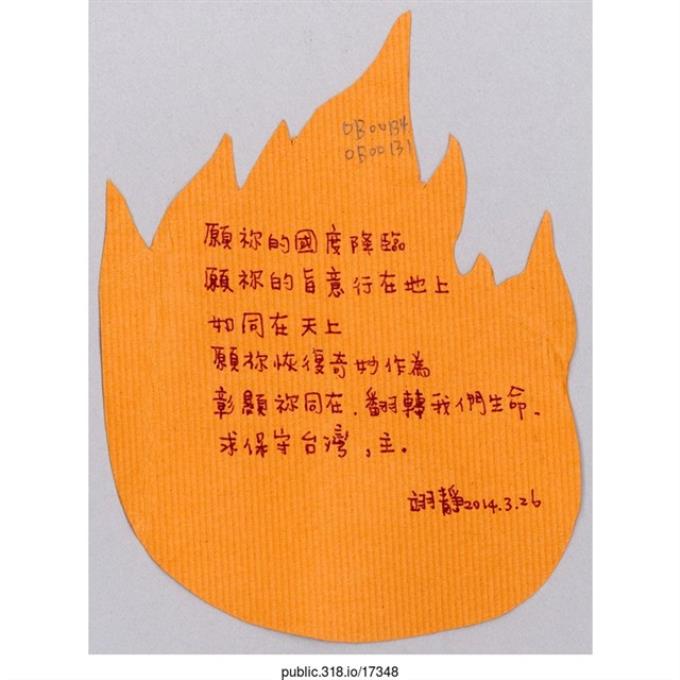 OB00134
OB00131
願祢的國度降臨
願祢的旨意行在地上
如同在天上
願祢恢復奇妙作為
彰顯祢同在．翻轉我們生命．
求保守台灣，主．
翊靜2014.3.26
public.318.io/17348